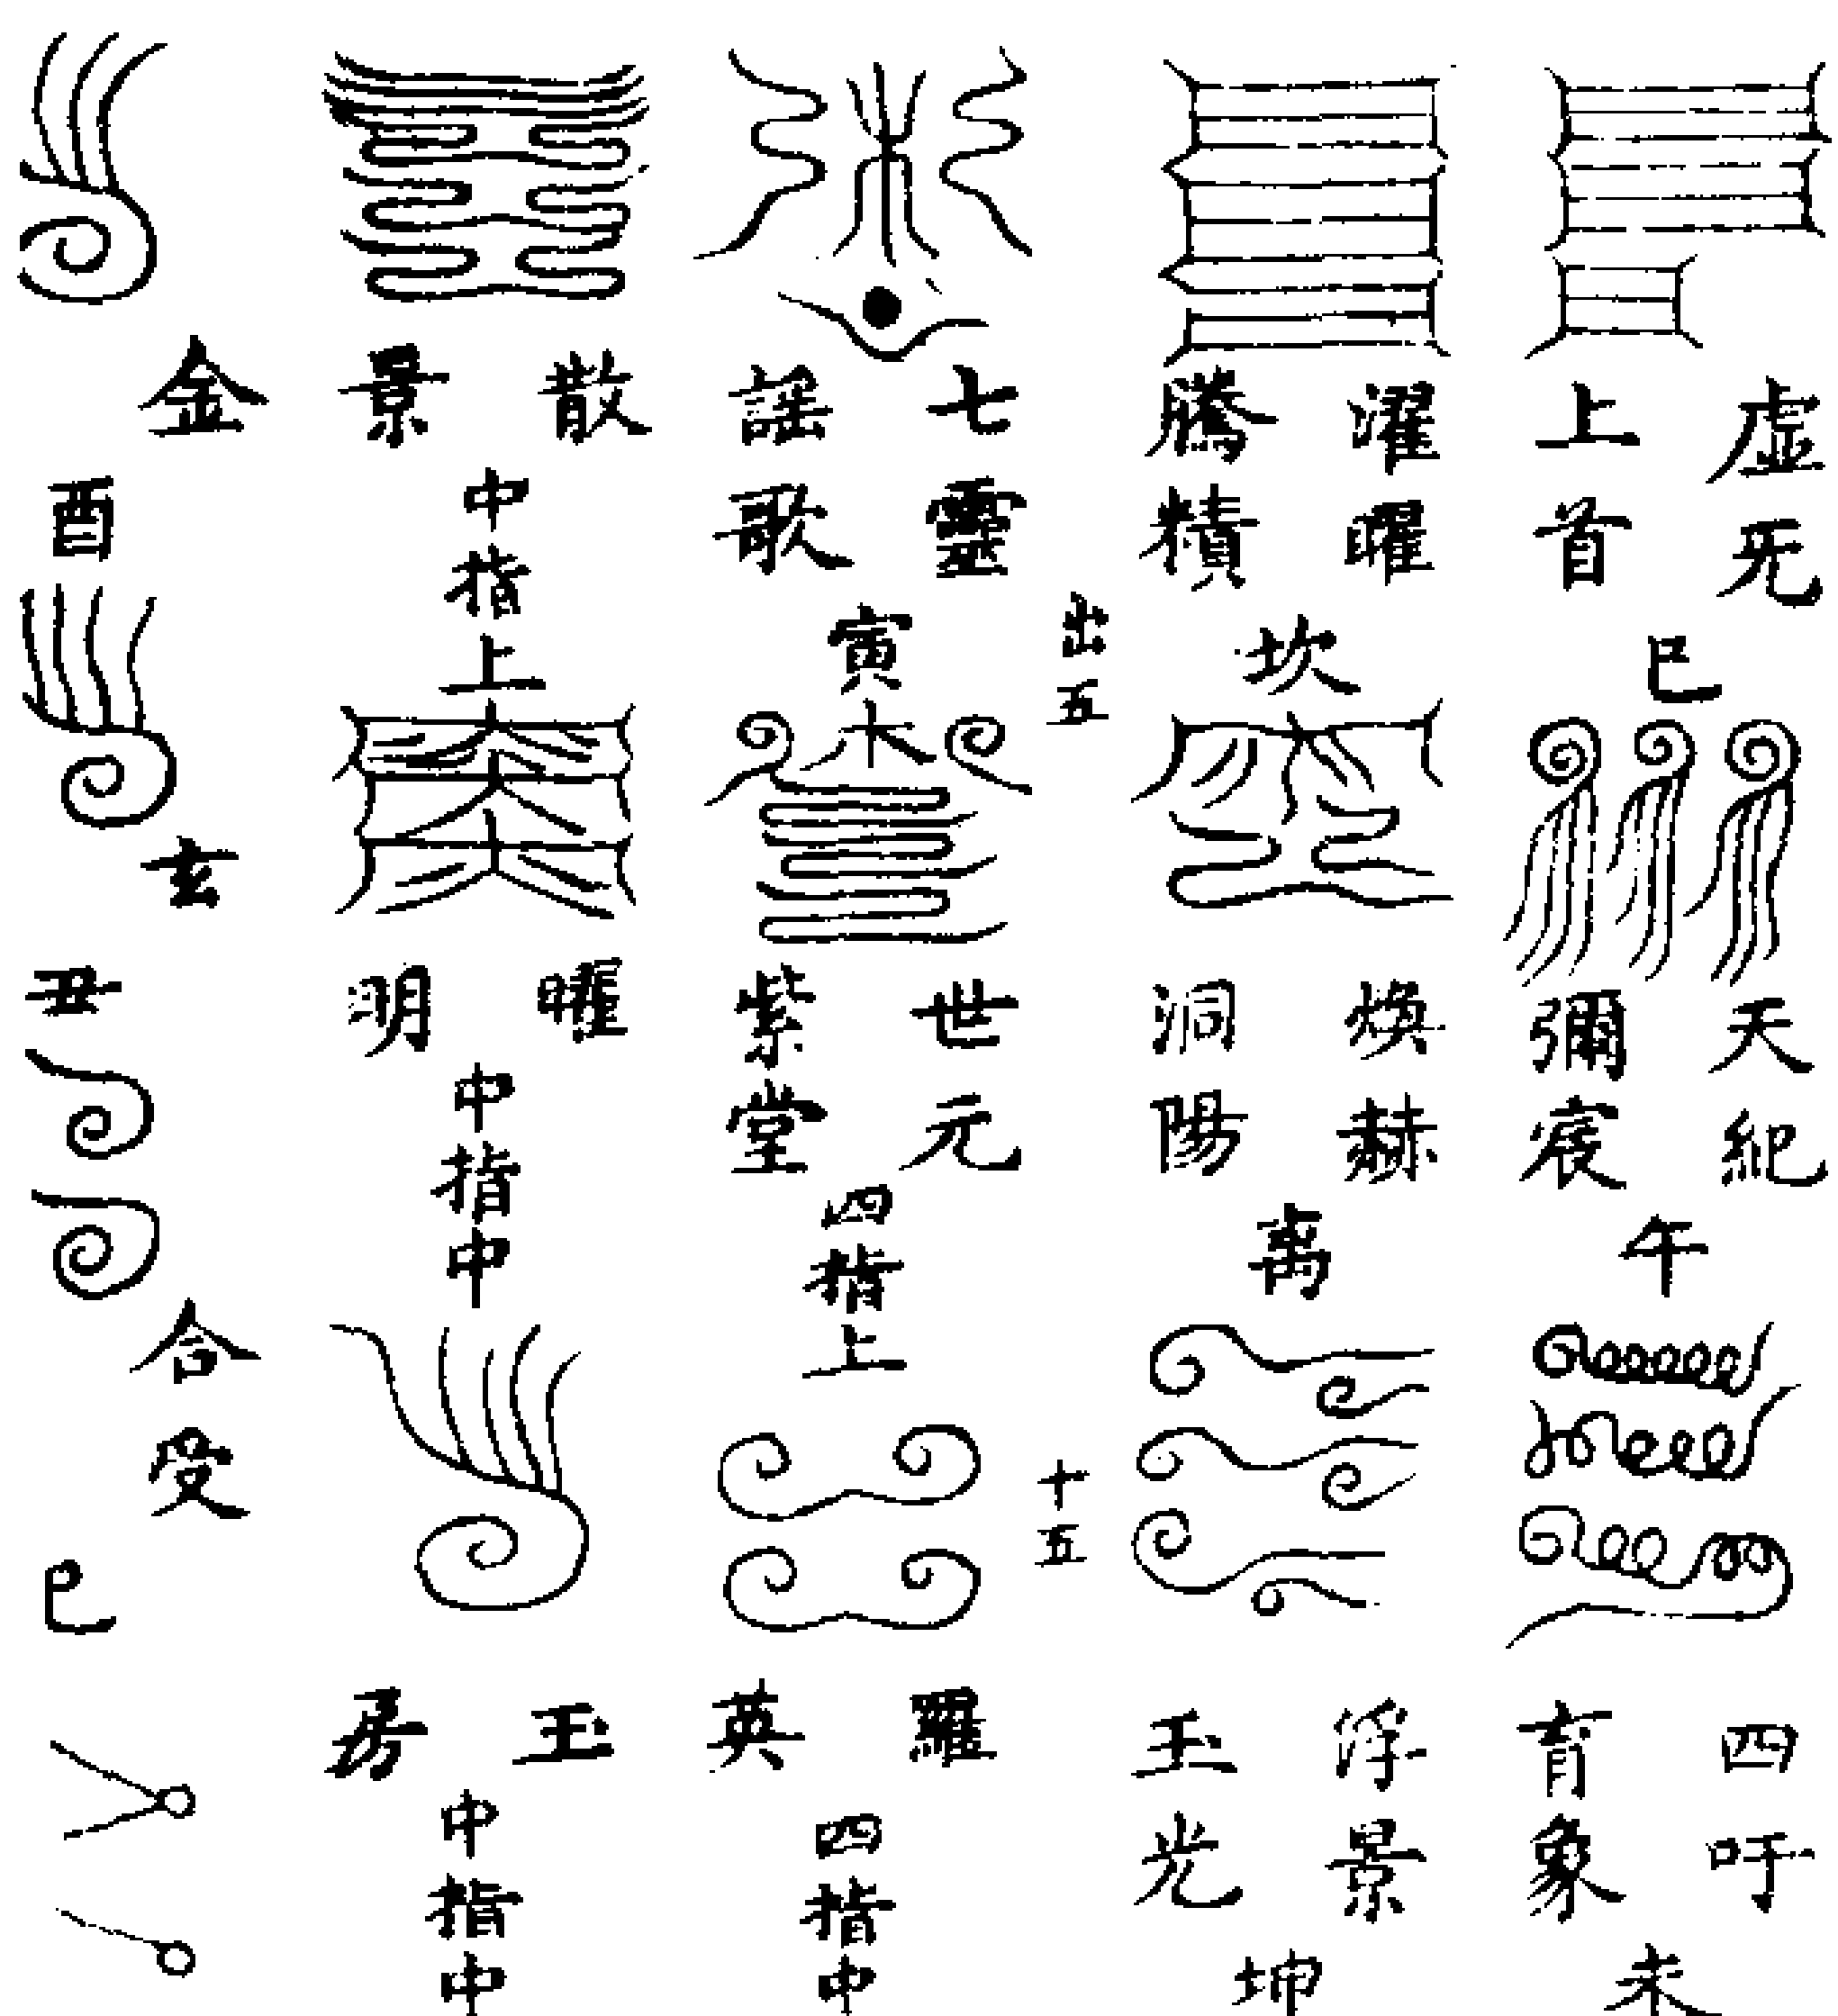 虛无
上首
巳
天紀
彌宸
午
四吁
育象
未
濯曜
騰積
坎
煥赫
洞陽
离
浮景
玉光
坤
出五
十五
七靈
謡歌
寅
世元
紫堂
四指上
羅
英
四指中
散
景
中指上
曜
明
中指中
玉
房
中指中
金
酉
玄
丑
合受
巳